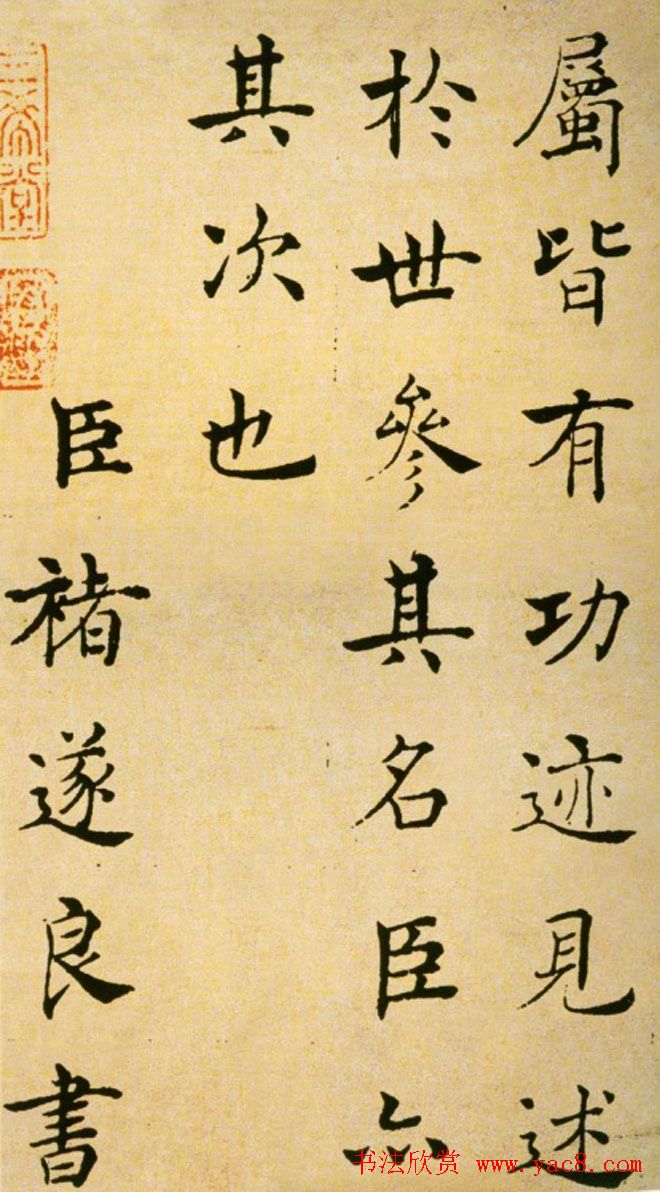 屬皆有功迹見述
於世參其名臣亦
其次也
臣褚遂良書
三希堂
书法欣赏 www.yac8.com